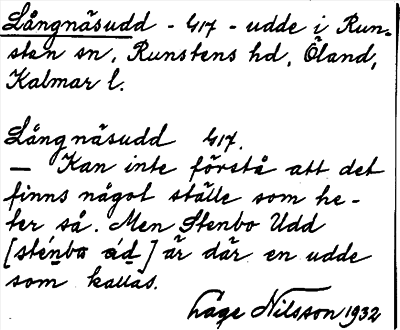 Långnäsudd - 417 - udde i Run-
sten sn, Runstens hd, Öland,
Kalmar l.
Långnäsudd 417.
— Kan inte förstå att det
finns något ställe som he-
ter så. Men Stenbo Udd
[sténbo ád] är där en udde
som kallas.
Låge Nilsson 1932